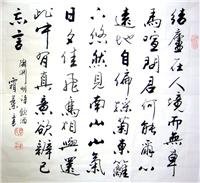 結廬在人境而無車
馬喧問君何能爾心
遠地自偏採菊東籬
下悠然見南山山氣
日夕佳飛鳥相與還
此中有真意欲辨已
忘言
陶淵明詩飲酒